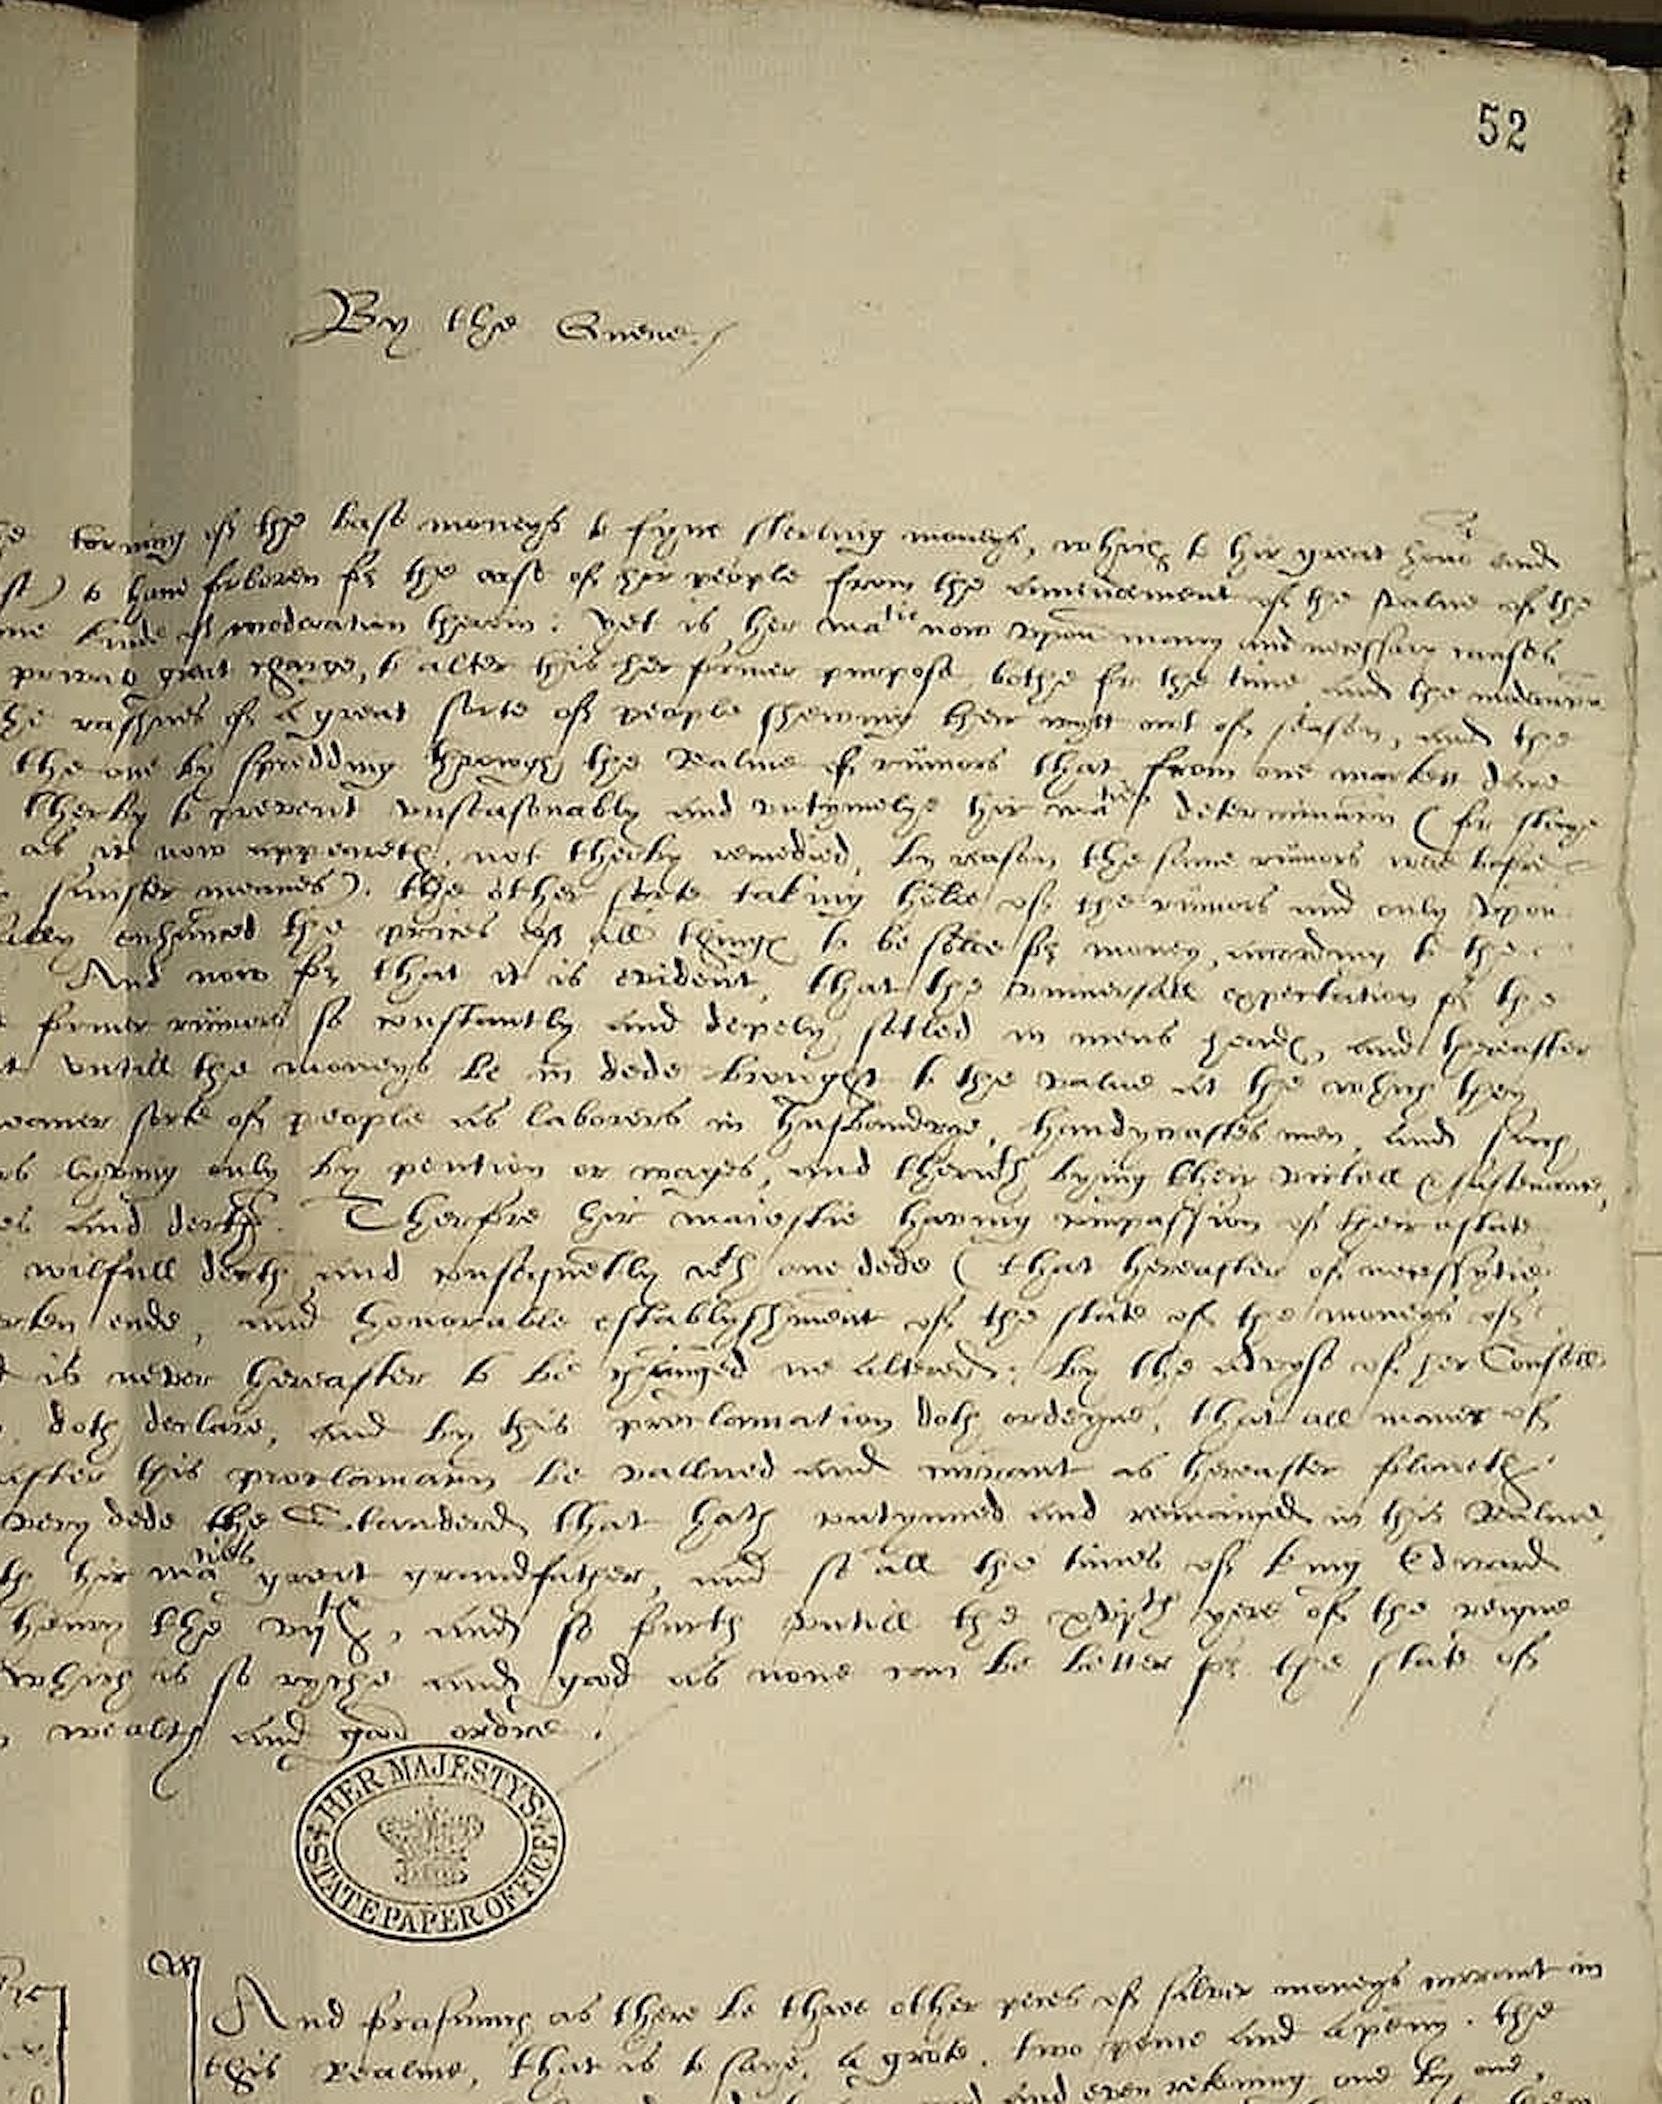 52
By the Quene
torning of the base moneys to fyne sterling moneys, which to hir great honor and
to have forboren for the ease of her people from the amendement of the value of the
kinde of moderation therin: yet is her matie now vpon many and necessary causes
great charge, to alter this her former purpose bothe for the time and the maner
rashnes of a great sorte of people shewing their witt out of season, and the
the one by spredding through the Realme of rumors that from one markett daye
therby to prevent vnseasonably and vntymelye hir maties determinacion (for staye
as it now appeareth, not therby remedied, by reason the same rumors were before
sinister meanes). the other sorte taking holde of the rumors and only vpon
enhanced the prices of all things to be solde for money, according to the
And now for that it is evident, that the vniversall expectation for the
former rumors so constantly and depely setled in mens heads, and therafter
vntill the moneys be in dede brought to the value at the which they
meaner sorte of people as laborers in husbandrye, handycraftes men, and such
lyving only by pention or wages, and therwith bying their victell & sustenance,
and derthe. Therfore hir maiestie having compassion of their astate
wilfull derth and consequetly wth one dede (that hereafter of necessytie
ende, and honorable establyshment of the state of the moneys of
is never hereafter to be chainged ne altered: by the advyse of her Consell
doth declare, and by this proclamation doth ordeyne, that all maner of
after this proclamacion be vallued and currant as hereafter foloweth
very dede the Standerd that hath contynued and remained in this Realme,
hir maties great grandfather, and so all the times of king Edward
henry the vijth, and so furth vntill the xvjth yere of the reigne
which is so ryche and good as none can be better for the state of
wealth and good ordre.
HER MAJESTY'S STATE PAPER OFFICE
And forasmuch as there be three other peces of silver moneys currant in
this Realme, that is to saye, a grote, two pence and a peny. the
and even rekoning one by one,